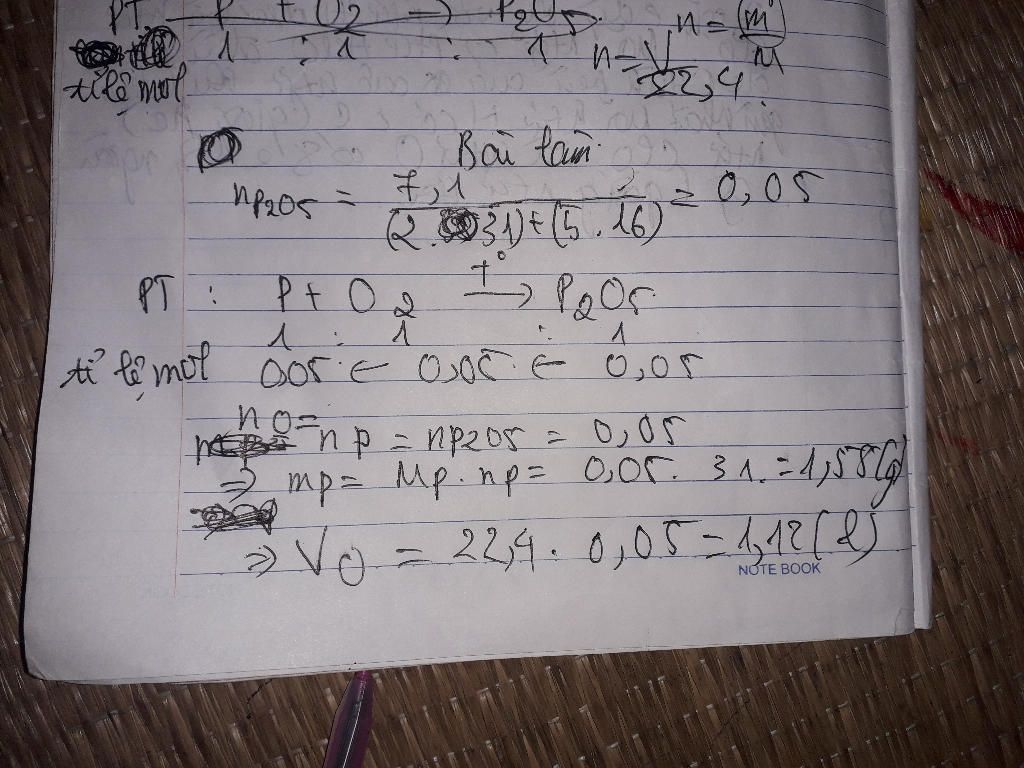 PT P + O2 → P2O5.
1 : 1 : 1
n = m/M
n = V/22,4
tỉ lệ mol
Bài làm
nP2O5 = 7,1/((2.31)+(5.16)) = 0,05
PT : P + O2 t°→ P2O5.
1 : 1 : 1
tỉ lệ mol 0,05 ← 0,05 ← 0,05
nO = nP = nP2O5 = 0,05
⇒ mP = MP . nP = 0,05 . 31. = 1,55(g)
⇒ VO = 22,4 . 0,05 = 1,12(l)
NOTE BOOK